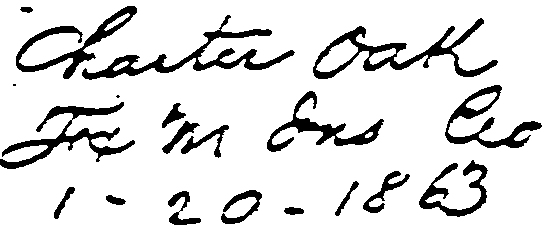 Charter Oak
Fre M Ins Co
1-20-1863